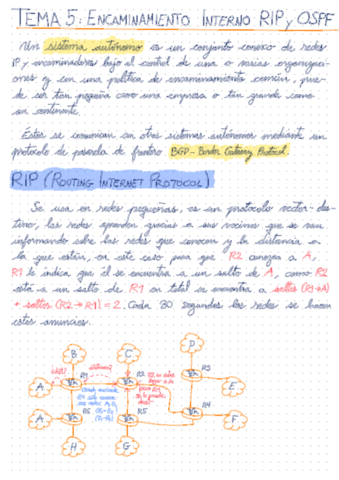 TEMA 5: ENCAMINAMIENTO INTERNO RIP y OSPF
Un sistema autónomo es un conjunto conexo de redes
IP y encaminadores bajo el control de una o varias organizaci-
ones y con una política de encaminamiento común, pue-
de ser tan pequeño como una empresa o tan grande como
un continente.
Estos se comunican con otros sistemas autónomos mediante un
protocolo de pasarela de frontera BGP - Border Gateway Protocol.
RIP (ROUTING INTERNET PROTOCOL)
Se usa en redes pequeñas, es un protocolo vector-des-
tino, las redes aprenden gracias a sus vecinos que se van
informando sobre las redes que conocen y la distancia a
la que están, en este caso para que R2 conozca a A,
R1 le indica que él se encuentra a un salto de A, como R2
está a un salto de R1 en total se encuentra a saltos (R1→A)
+ saltos (R2→R1) = 2. Cada 30 segundos las redes se hacen
estos anuncios.
B
C
D
A
R1
R2
R3
E
A
R6
R5
R4
F
H
G